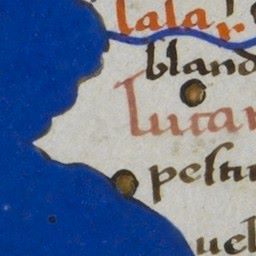 lala
bland
lucan
pestu
uel